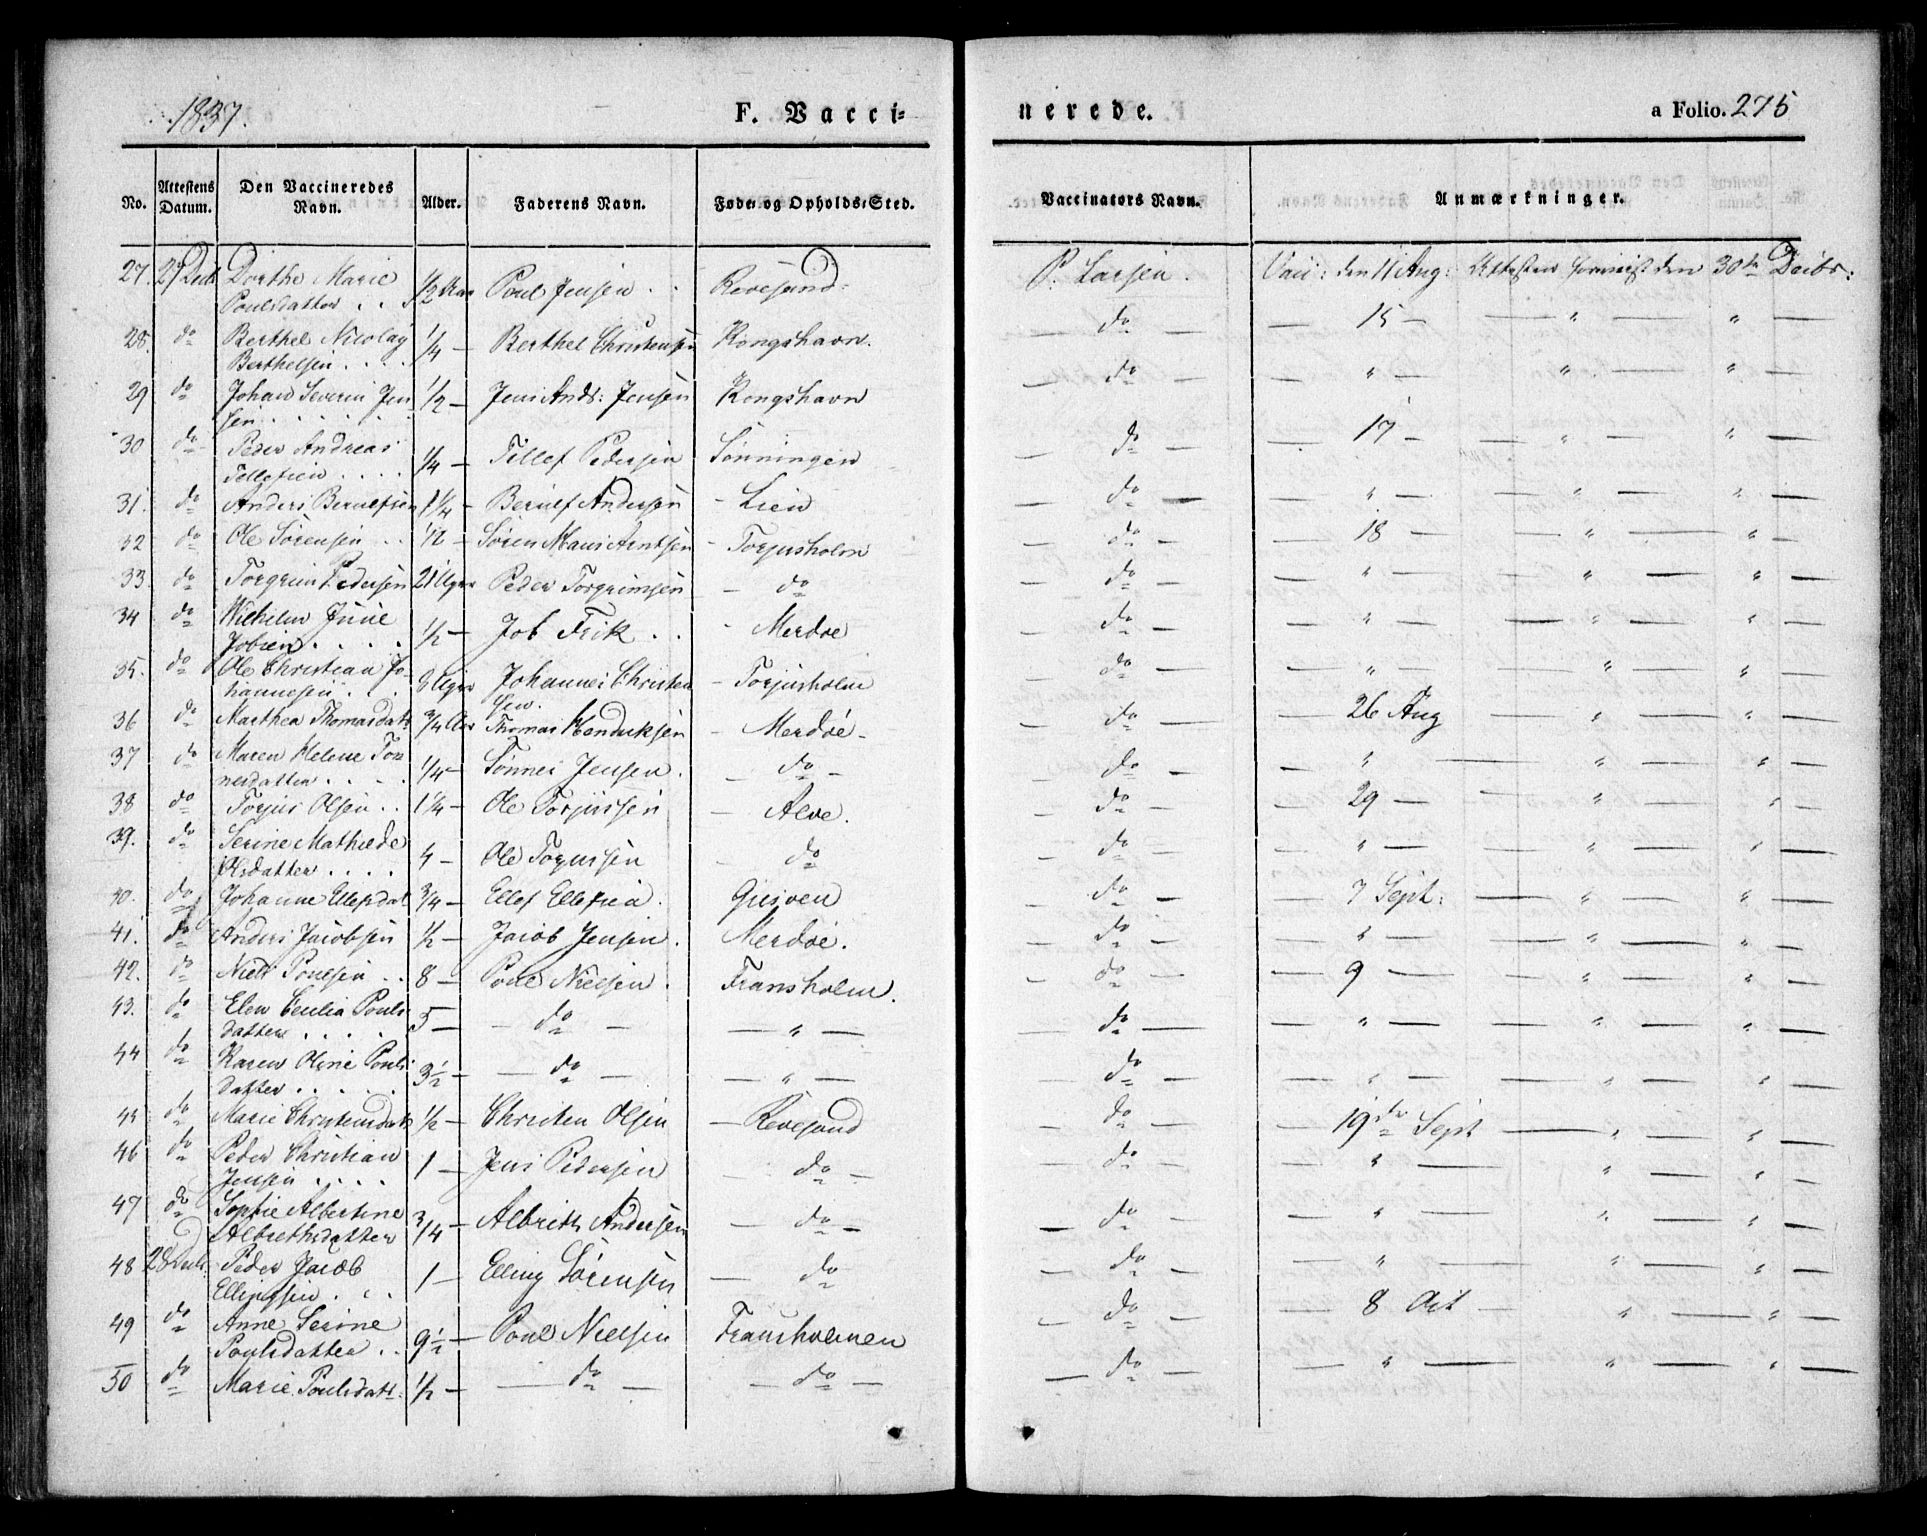 1837.
F. Vacci-
nerede.
a Folio. 275
No. Attestens Datum. Den Vaccineredes Navn. Alder. Faderens Navn. Føde- og Opholds-Sted. Vaccinators Navn. Anmærkninger.
27. 29 Decb Dorthe Marie
Poulsdatter . . 1/2 Aar Poul Jensen . . Revesand. P. Larsen. Vacc: den 11 Aug: Attesten den 30te Decbr:
28. do Berthel Nicolay
Berthelsen . . . . 1/4 — Berthel Christensen Kongshavn. — do — — 15 — — " — " —
29 do Johan Severin Jen
sen . . . . . . 1/2 — Jens Ands: Jensen Kongshavn — do — — " — — " — " —
30 do Peder Andreas
Tellefsen . . . . 1/4 — Tellef Pedersen Sønningen — do — — 17 — — " — " —
31. do Anders Berulfsen 1 1/4 — Berulf Andersen - Lien — do — — " — — " — " —
32 do Ole Sørensen . . 1/2 — Søren Mausis Arntsen - Torjusholm — do — — 18 — — " — " —
33. do Torgrim Pedersen 21 Uger Peder Torgrimsen — do — do — — " — — " — " —
34 do Wilhelm June
Jobsen . . . . 1/2 — Job Frik . . - Merdøe — do — — " — — " — " —
35. do Ole Christian Jo-
hannesen . . 8 Uger Johannes Christen
sen. - Torjusholm — do — — " — — " — " —
36 do Marthea Thomasdat 3/4 Aar Thomas Hendriksen - Merdøe - — do — — 26 Aug — " — " —
37 do Maren Helene Tøn
nesdatter . . . . 1/4 — Tønnes Jensen. — do — — do — — " — — " — " —
38 do Torjus Olsen . . 1 1/4 — Ole Torjussen — Alve. — do — — 29 — — " — " —
39. do Serine Mathilde
Olsdatter . . . . 4 — Ole Torjussen — do — do — — " — — " — " —
40. do Johanne Ellefsdat 3/4 — Ellef Ellefsen. Gjesven — do — — 7 Sept: — " — " —
41. do Anders Jacobsen 1/2 — Jacob Jensen. Merdøe. — do — — " — — " — " —
42. do Niels Poulsen . . 8 — Poul Nielsen. Fransholm. — do — — 9 — — " — " —
43. do Elen Cecilia Pouls
datter . . . . 5 — — do — — " — — do — — " — — " — " —
44 do Karen Oline Pouls
datter . . . . . 3 1/2 — — do — — " — — do — — " — — " — " —
45 do Marie Christensdat 1/2 — Christen Olsen — Revesand — do — — 19de Sept — " — " —
46 do Peder Christian
Jensen . . . . 1 — Jens Pedersen — do — — do — — " — — " — " —
47 do Sophie Albertine
Albrethsdatter 3/4 — Albreth Andersen — do — — do — — " — — " — " —
48 28 Decb. Peder Jacob
Ellingsen . . . 1 — Elling Sørensen — do — do — — " — — " — " —
49 do Anne Serine
Poulsdatter . . 9 1/2 — Poul Nielsen Fransholmen — do — — 8 Oct — — " — " —
50 do Marie Poulsdatt. 1/2 — — do — — do — — do — — " — — " — " —